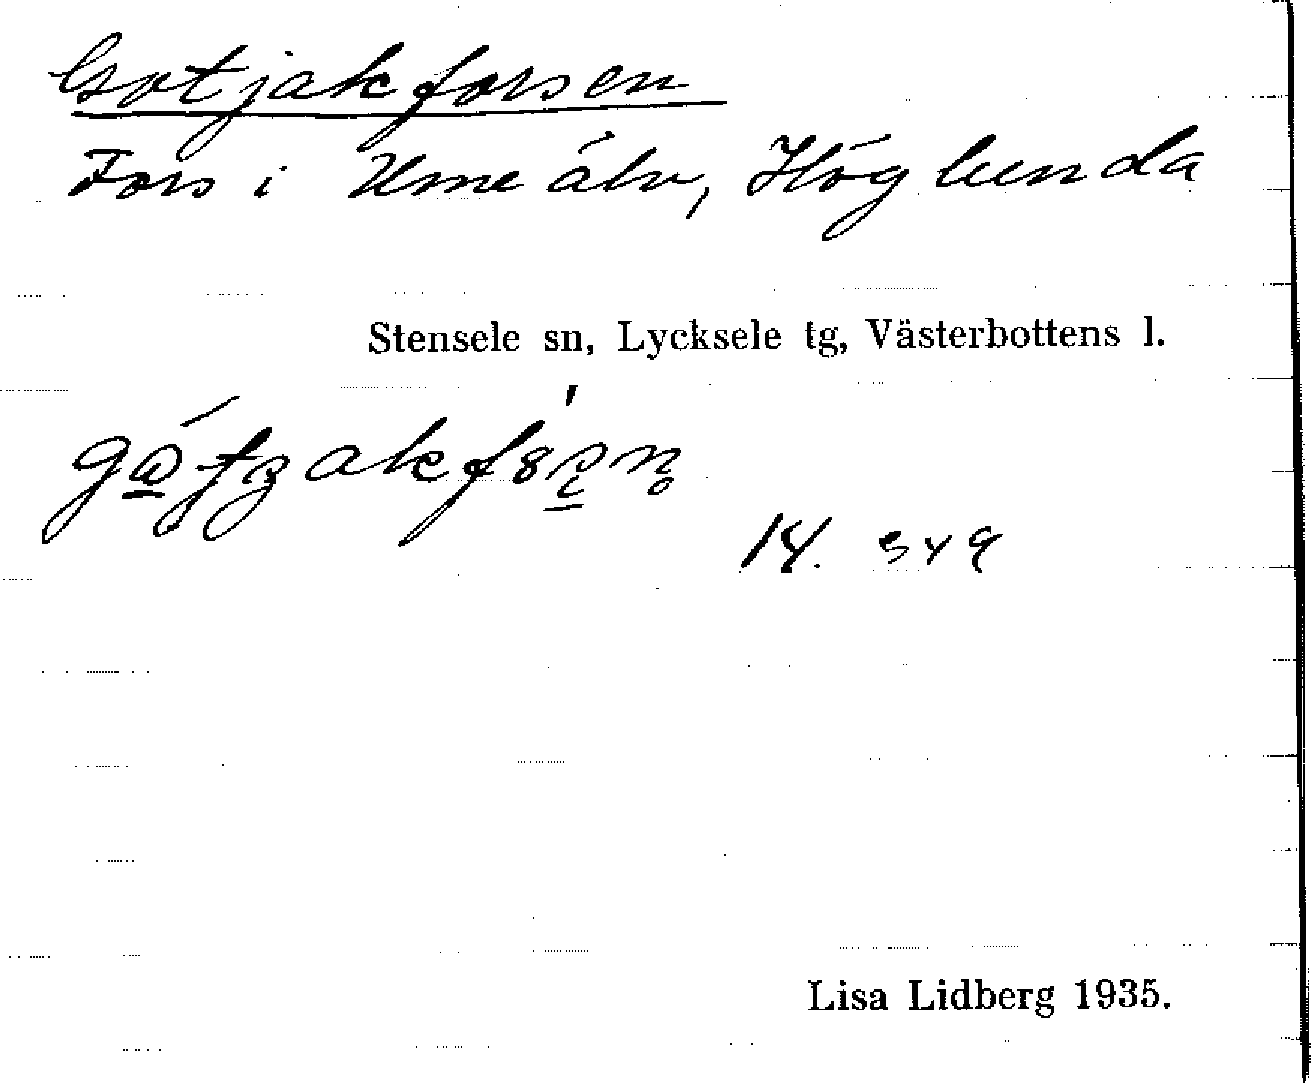 Gotjakforsen
Fors i Ume älv, Höglunda
Stensele sn, Lycksele tg, Västerbottens l.
14.
Lisa Lidberg 1935.